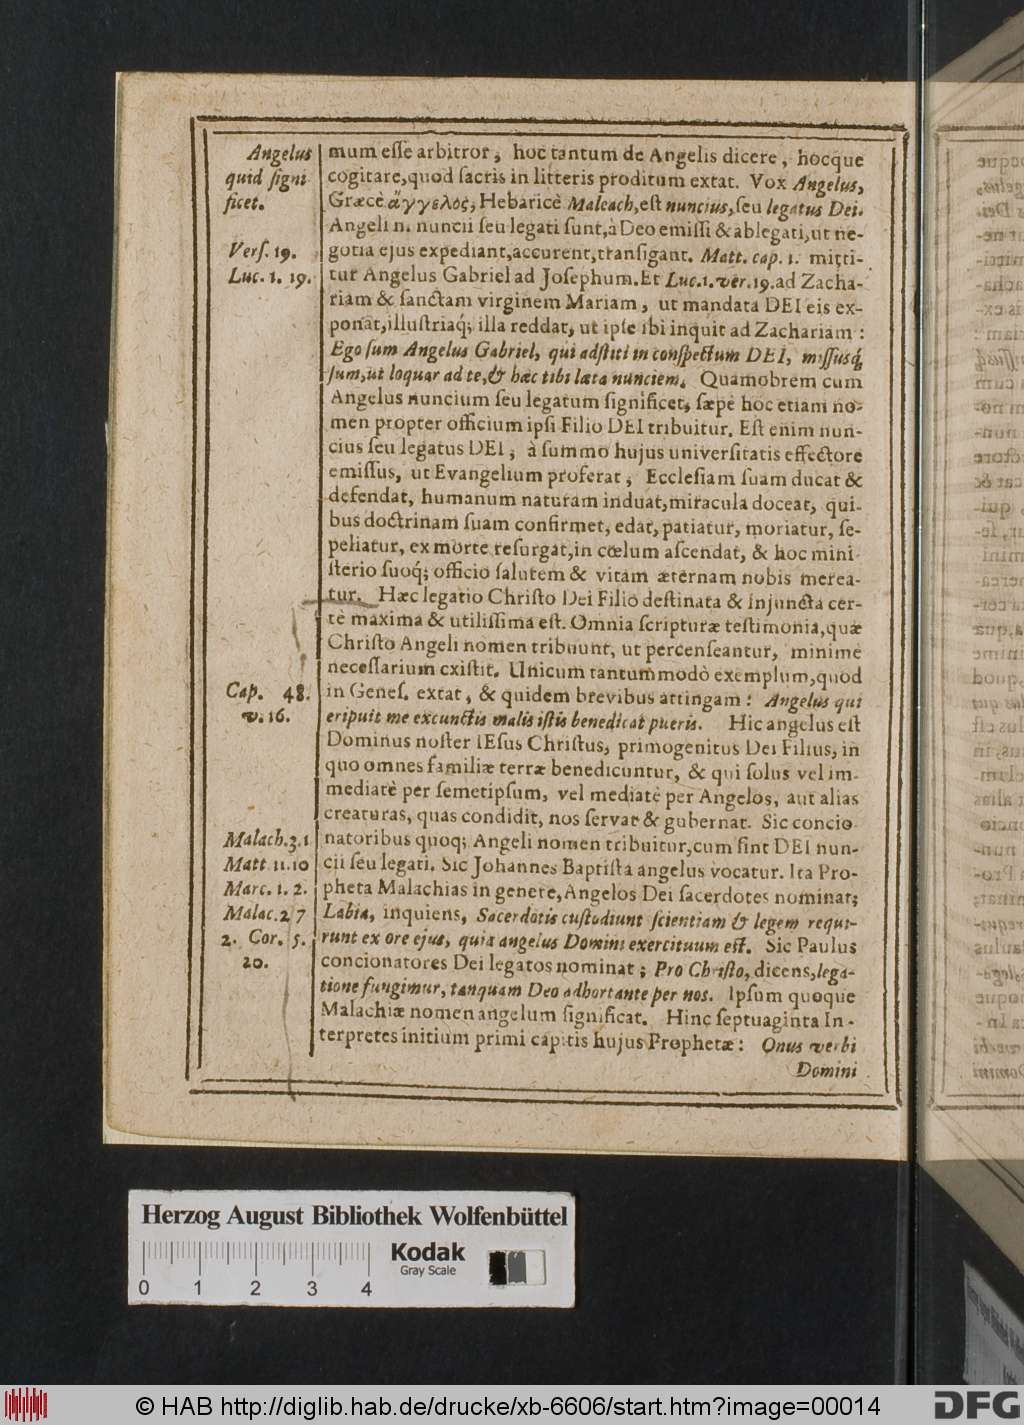 Angelus
quid signi
ficet.
Vers. 19.
Luc. 1. 19.
Cap. 48.
v. 16.
Malach. 3. 1
Matt 11. 10
Marc. 1. 2.
Malac. 2 7
2. Cor. 5.
20.
mum esse arbitror, hoc tantum de Angelis dicere, hocque
cogitare, quod sacris in litteris proditum extat. Vox Angelus,
Græcè ἄγγελος, Hebaricè Maleach, est nuncius, seu legatus Dei.
Angeli n. nuncii seu legati sunt, à Deo emissi & ablegati, ut ne-
gotia ejus expediant, accurent, transigant. Matt. cap. 1. mitti-
tur Angelus Gabriel ad Josephum. Et Luc. 1. ver. 19. ad Zacha-
riam & sanctam virginem Mariam, ut mandata DEI eis ex-
ponat, illustriaq; illa reddat, ut ipse ibi inquit ad Zachariam:
Ego sum Angelus Gabriel, qui adstiti in conspectum DEI, missusq́
sum, ut loquar ad te, & hæc tibi læta nunciem. Quamobrem cum
Angelus nuncium seu legatum significet, sæpè hoc etiam no-
men propter officium ipsi Filio DEI tribuitur. Est enim nun-
cius seu legatus DEI, à summo hujus universitatis effectore
emissus, ut Evangelium proferat, Ecclesiam suam ducat &
defendat, humanum naturam induat, miracula doceat, qui-
bus doctrinam suam confirmet, edat, patiatur, moriatur, se-
peliatur, ex morte resurgat, in cœlum ascendat, & hoc mini-
sterio suoq́; officio salutem & vitam æternam nobis merea-
tur. Hæc legatio Christo Dei Filio destinata & injuncta cer-
tè maxima & utilissima est. Omnia scripturæ testimonia, quæ
Christo Angeli nomen tribuunt, ut percenseantur, minimè
necessarium existit. Unicum tantummodò exemplum, quod
in Genes. extat, & quidem brevibus attingam: Angelus qui
eripuit me excunctis malis istis benedicat pueris. Hic angelus est
Dominus noster IEsus Christus, primogenitus Dei Filius, in
quo omnes familiæ terræ benedicuntur, & qui solus vel im-
mediatè per semetipsum, vel mediatè per Angelos, aut alias
creaturas, quas condidit, nos servat & gubernat. Sic concio
natoribus quoq; Angeli nomen tribuitur, cum sint DEI nun-
cii seu legati. Sic Johannes Baptista angelus vocatur. Ita Pro-
pheta Malachias in genere, Angelos Dei sacerdotes nominat;
Labia, inquiens, Sacerdotis custodiunt scientiam & legem requi-
runt ex ore ejus, quia angelus Domini exercituum est. Sic Paulus
concionatores Dei legatos nominat; Pro Christo, dicens, lega-
tione fungimur, tanquam Deo adhortante per nos. Ipsum quoque
Malachiæ nomen angelum significat. Hinc septuaginta In-
terpretes initium primi capitis hujus Prophetæ: Onus verbi
Domini
Herzog August Bibliothek Wolfenbüttel
Kodak
Gray Scale
0 1 2 3 4
© HAB http://diglib.hab.de/drucke/xb-6606/start.htm?image=00014
DFG